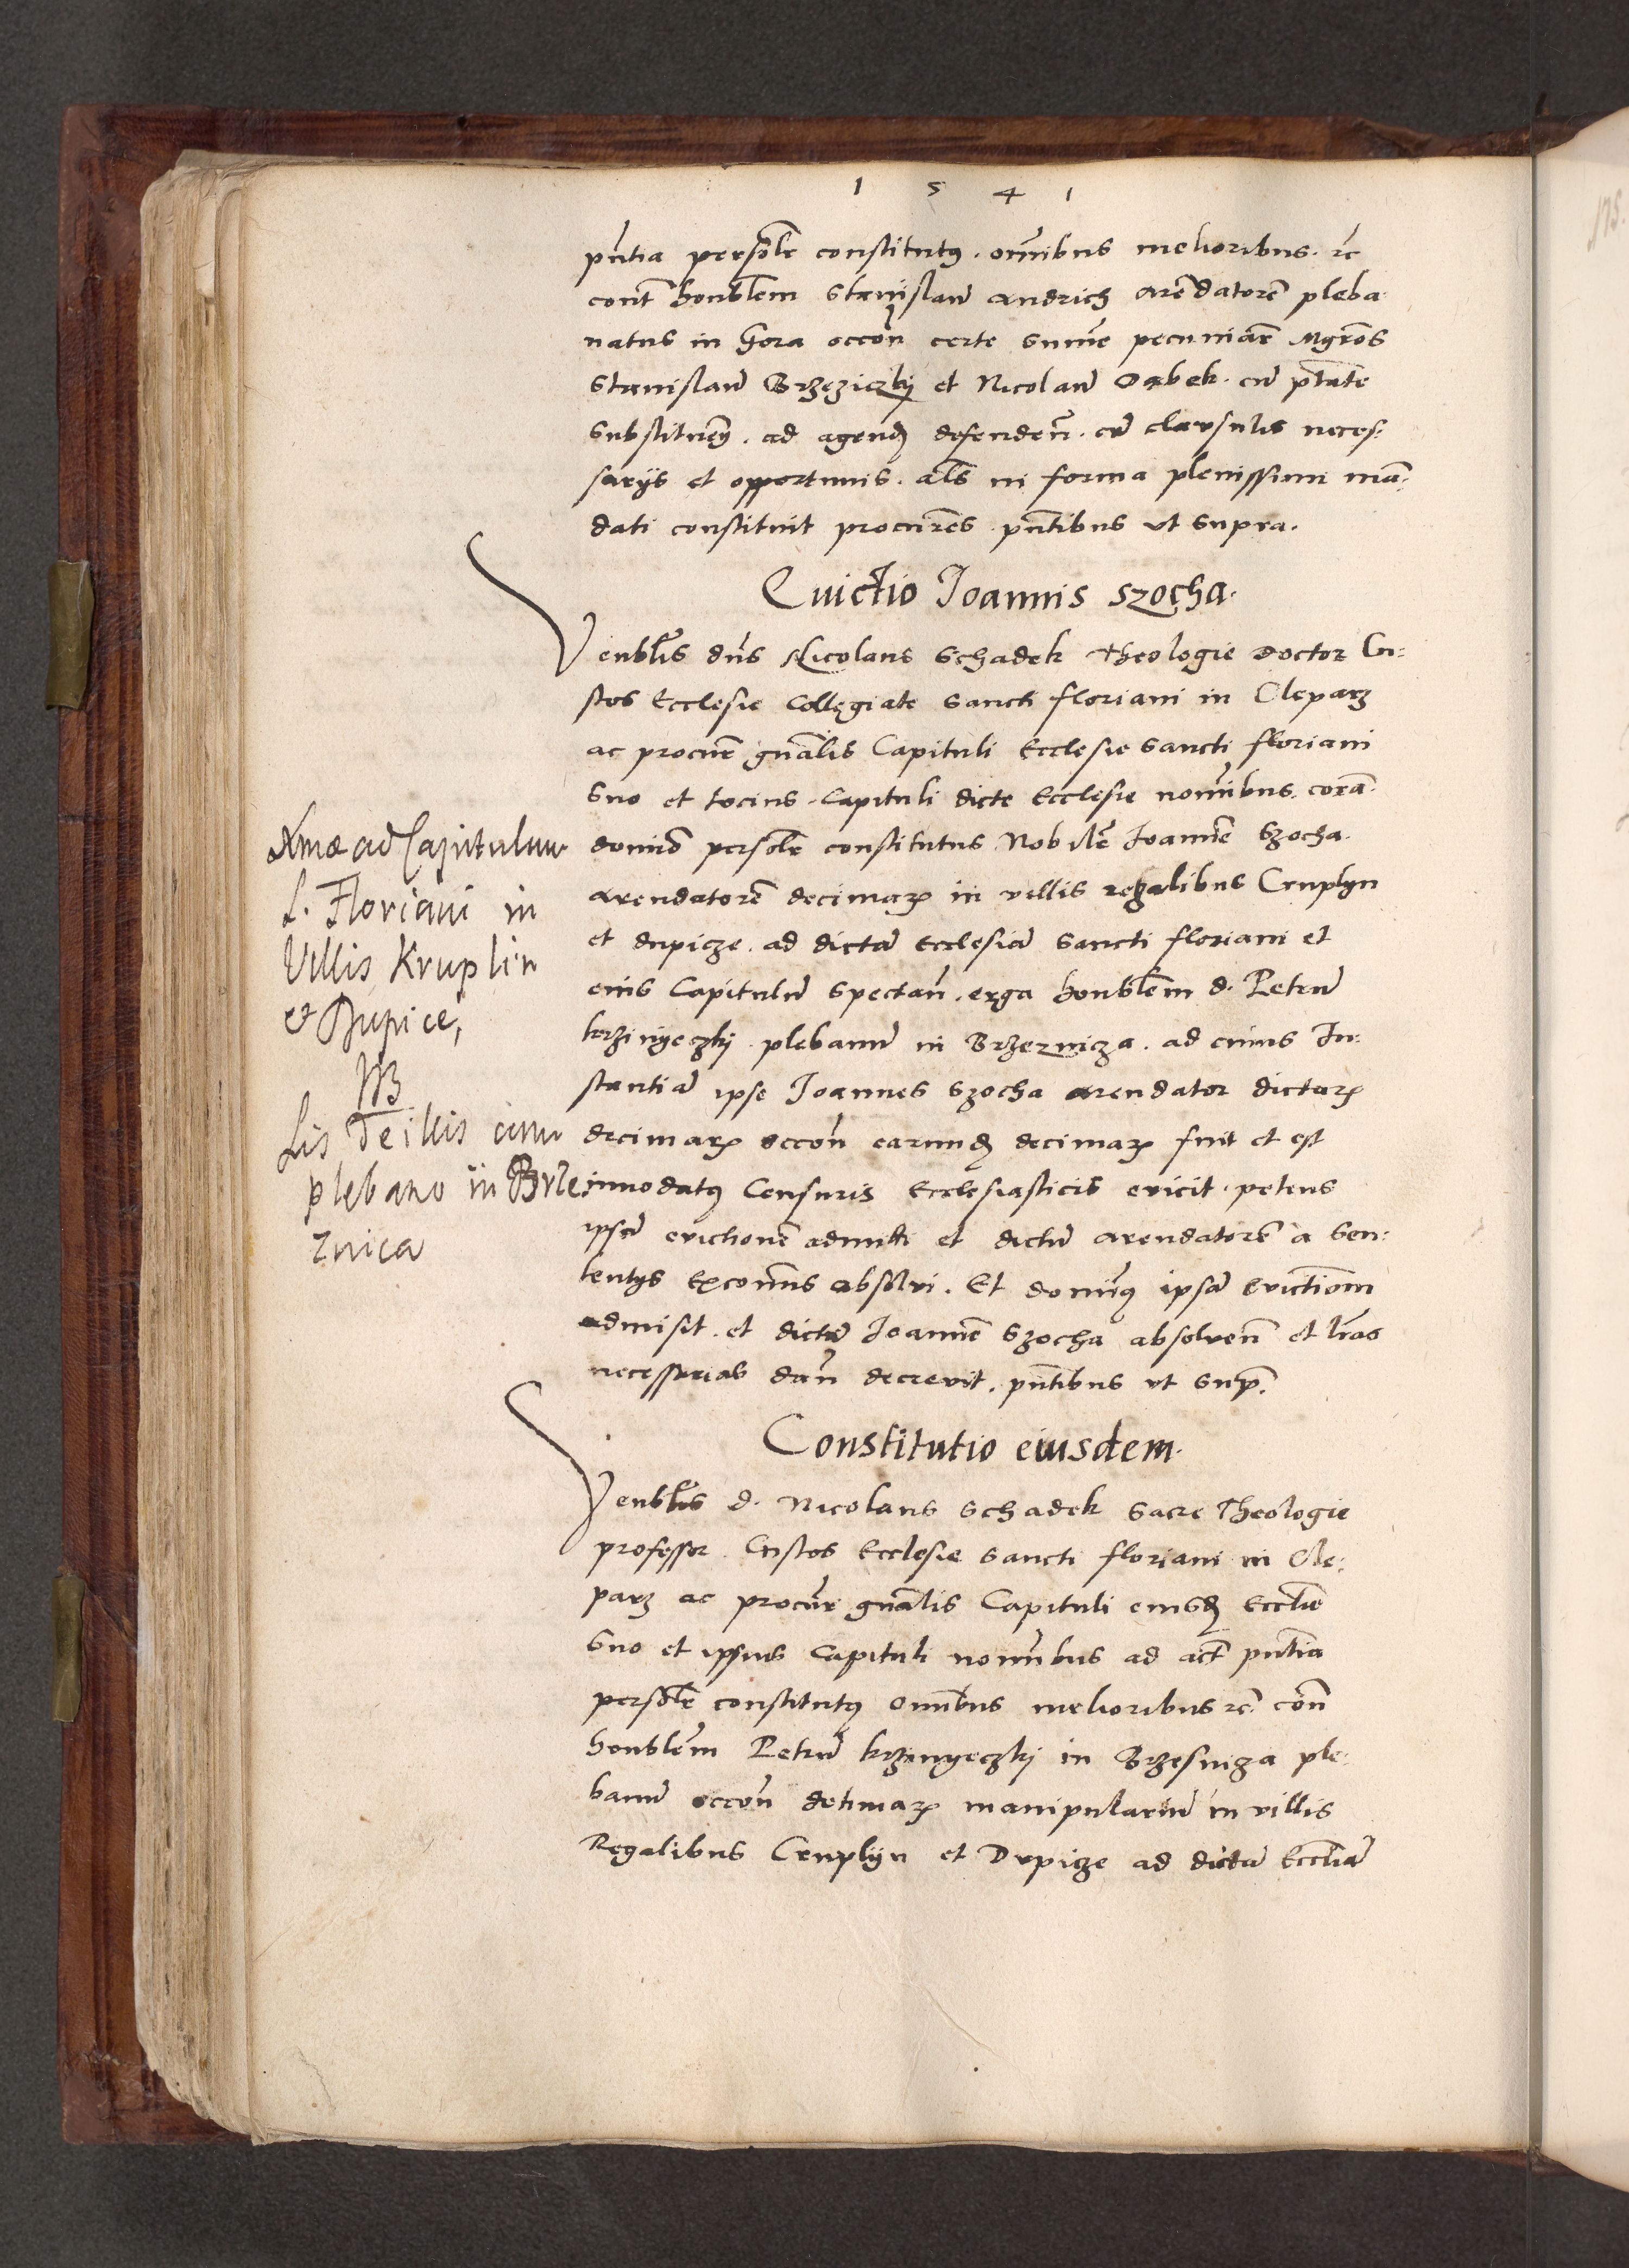 1 5 4 1
pñtia persolr constitutꝯ. omnibus melioribus. rc
cont honblem Stanislaum andrich arendatorem pleba
natus in Gora occon certe summe pecuniar Mgros
Stanislaum Brzeziczkÿ et Nicolaum Oxbek. cum ptate
substituen. ad agend defenden. cum clausulis neces:
sarÿs et opportunis. als in forma plenissimi man:
dati constituit procures. pntibus ut supra.
Euictio Joannis szocha.
Venblis dns Nicolaus Schadek theologie doctor Cu:
stos Ecclesie Collegiate Sancti floriani in Cleparz
ac procur gnalis Capituli Ecclesie Sancti floriani
suo et tocius Capituli dicte Ecclesie nominibus. coram
domino persolr constitutus Nobilem Joannem Szocha
arendatorem decimarꝝ in villis regalibus Cruplyn
et dupicze. ad dictam Ecclesiam Sancti floriani et
eius Capitulum spectan. erga honblem d. Petrum
krzinÿeczkÿ plebanum in Brzeznicza. ad cuius In:
stantiam ipse Joannes Szocha arendator dictarꝝ
decimarꝝ occon earund decimarꝝ fuit et est
innodatꝯ Censuris Ecclesiasticis evicit. petens
ipsam evictionem admitti et dictum arendatorem a Sen:
tentÿs Exconis absolvi. Et dominꝯ ipsam evictionem
admisit. et dictum Joannem Szocha absolven et lras
necessarias dan decrevit. pntibus ut supª.
Constitutio eiusdem.
Venblis d. Nicolaus Schadek Sacre Theologie
professor Custos Ecclesie Sancti floriani in Cle:
parz ac procur gnalis Capituli eiusd Ecclie
suo et ipsius Capituli nominibus ad act pntia
persolr constitutꝯ omnibus melioribus rc. con
honblem Petrum krzinyeczkÿ in Brzesnicza ple:
banum occon decimarꝝ manipularium in villis
Regalibus Cruplÿn et Dupicze ad dictam Eccliam
Xmæ ad Capitulum
S. Floriani in
Villis Kruplin
et Dupice,
NB
Lis de illis cum
plebano in Brze
znica
175.